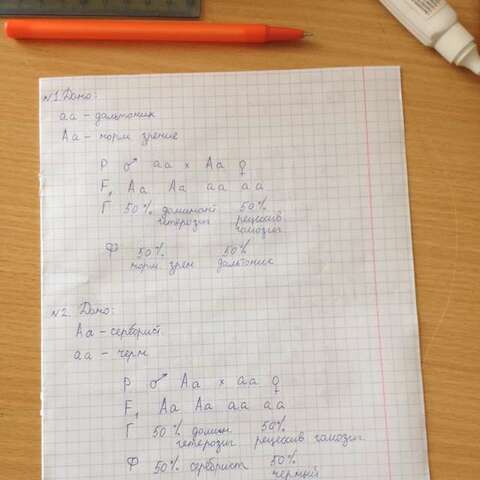 №1 Дано:
аа – дальтоник
Аа – норм зрение
Р ♂ аа × Аа ♀
F₁ Аа Аа аа аа
Г 50% доминант 50%
гетерозиг рецессив
гомозиг
Ф 50% 50%
норм зрен дальтоник
№2. Дано:
Аа – серебрист.
аа – черн
Р ♂ Аа × аа ♀
F₁ Аа Аа аа аа
Г 50% домин 50%
гетерозиг рецессив гомозиг.
Ф 50% серебрист 50%
черный